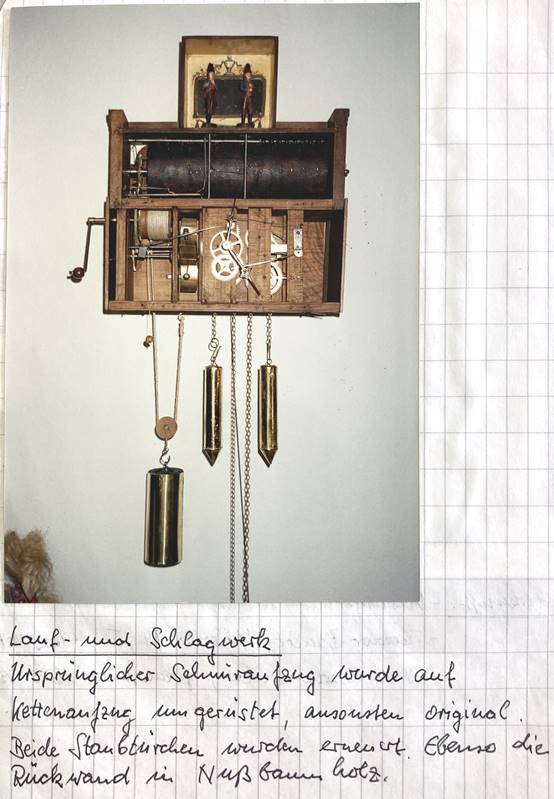 Lauf- und Schlagwerk
Ursprünglicher Schnuraufzug wurde auf
Kettenaufzug umgerüstet, ansonsten original.
Beide Staubtürchen wurden erneuert. Ebenso die
Rückwand in Nußbaumholz.